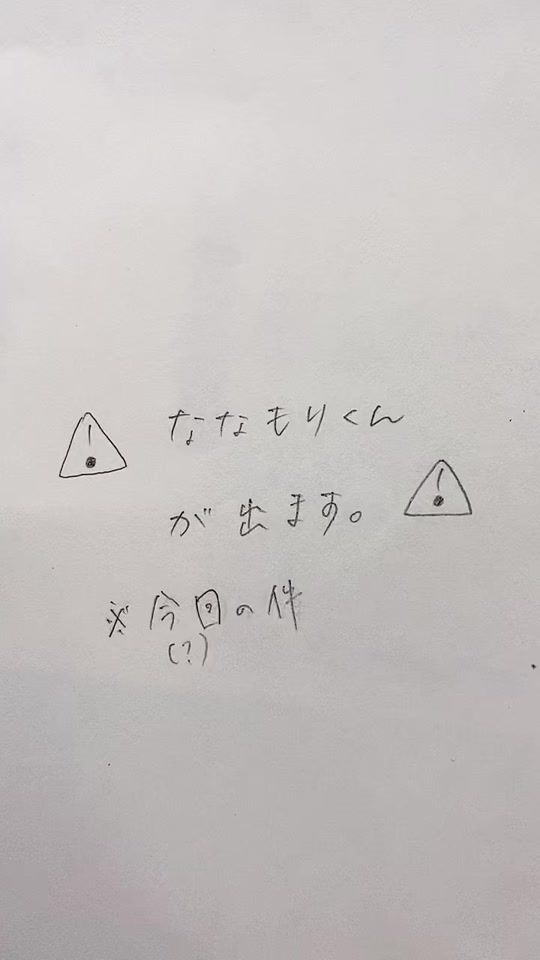 ななもりくん
が出ます。
※今回の件
(?)